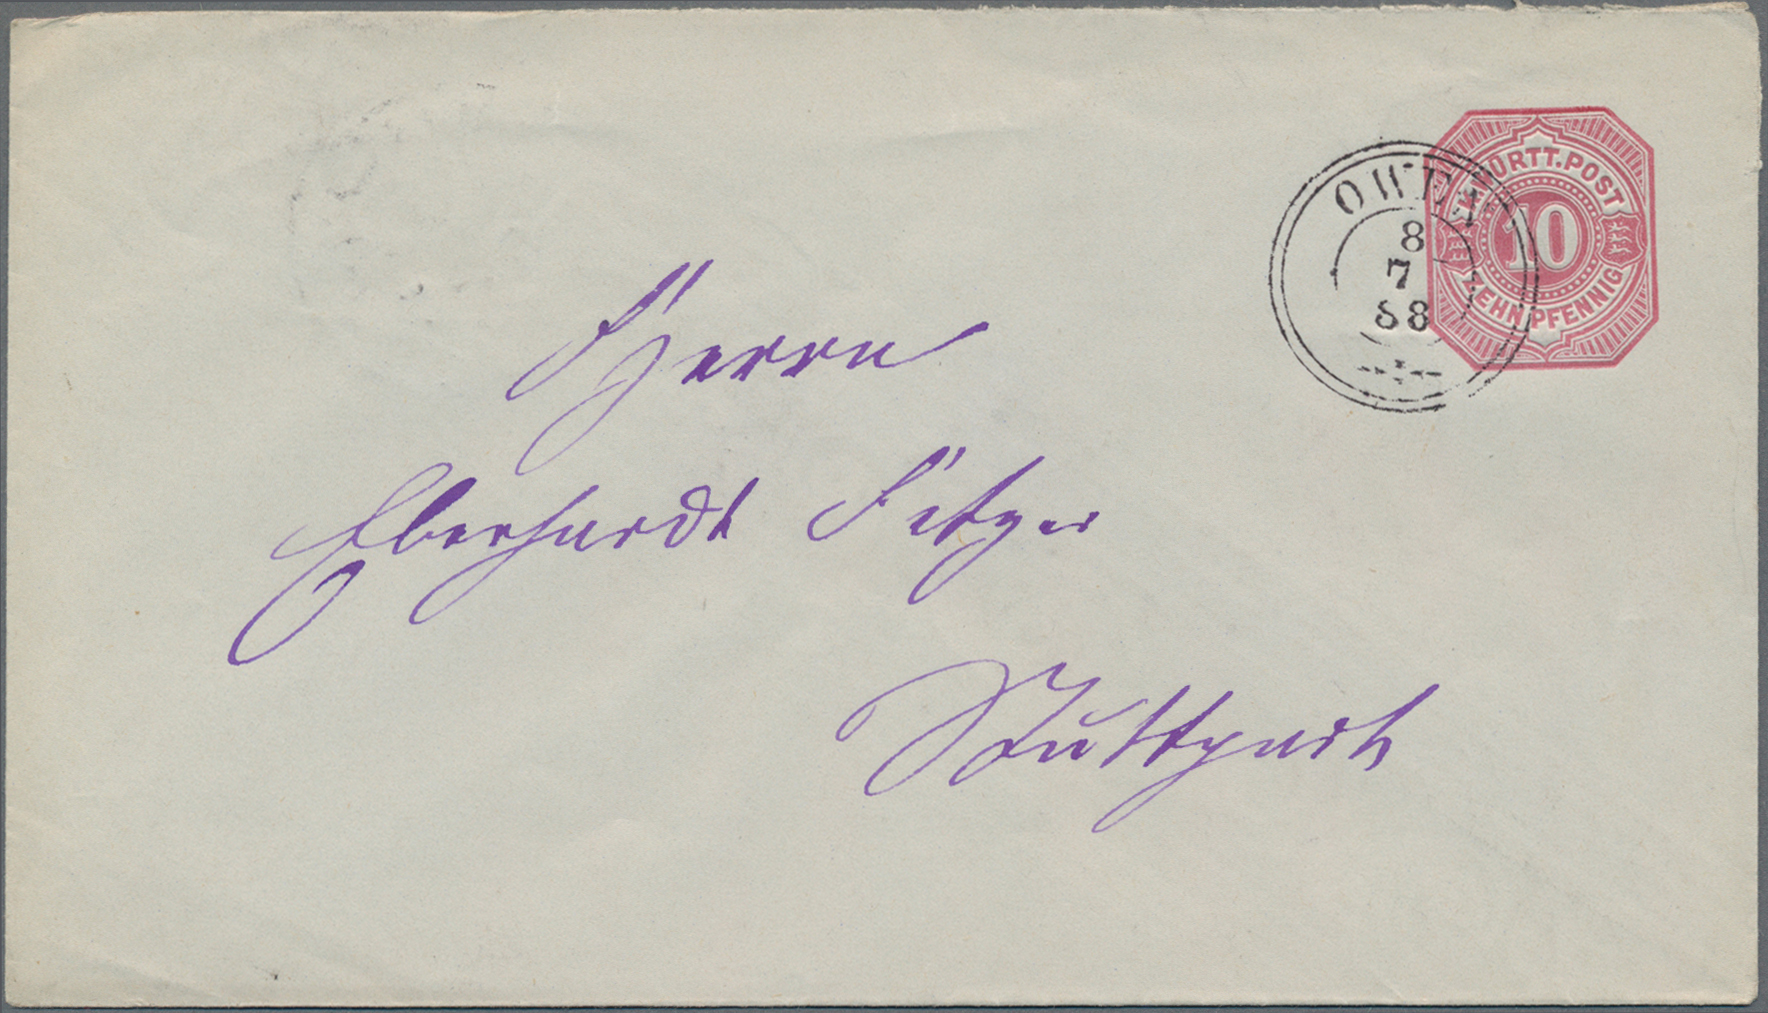 K. WÜRTT. POST
10
ZEHN PFENNIG
OWEN
8
7
88
Herrn
Eberhardt Fetzer
Stuttgart